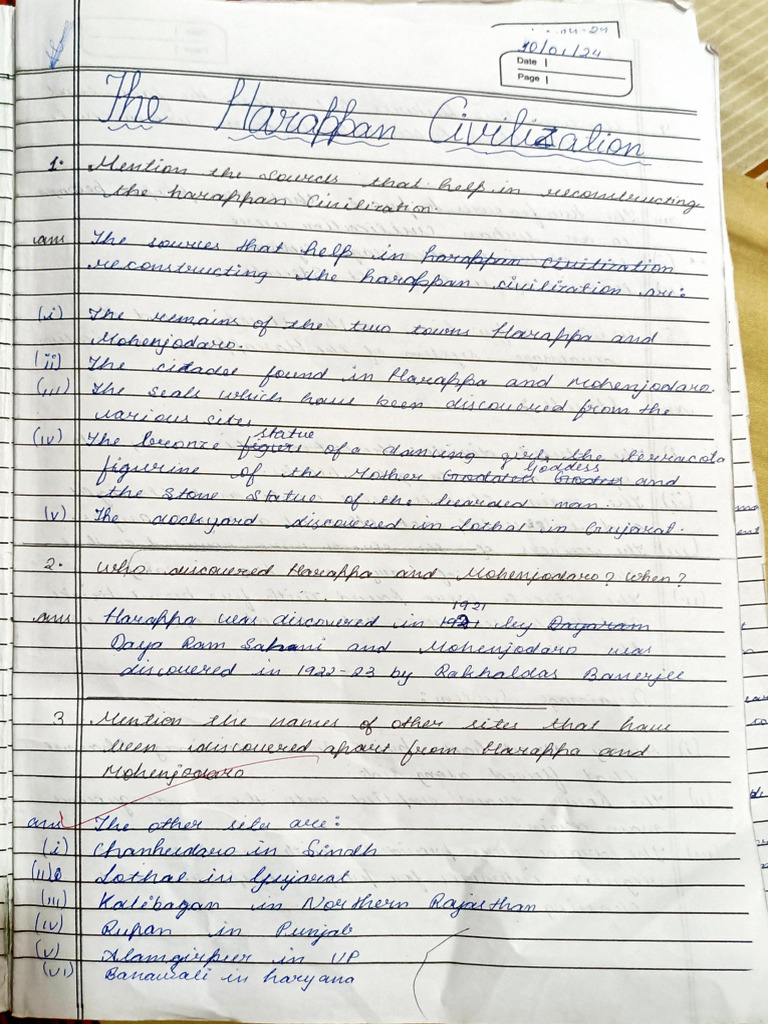 10/01/24
Date
Page
The Harappan Civilization
1. Mention the sources that help in reconstructing
the harappan Civilization.
ans The sources that help in harappan civilization
reconstructing the harappan civilization are:
(i) The remains of the two towns Harappa and
Mohenjodaro.
(ii) The citadel found in Harappa and Mohenjodaro.
(iii) The seals which have been discovered from the
various sites
statue
(iv) The bronze figure of a dancing girl, the terracota
Goddess
figurine of the Mother and
the stone statue of the bearded man.
(v) The dockyard discovered in Lothal in Gujarat.
2. Who discovered Harappa and Mohenjodaro? When?
1921
ans Harappa was discovered in 1921 by Dayaram
Daya Ram Sahani and Mohenjodaro was
discovered in 1922-23 by Rakhaldas Banerjee
3 Mention the names of other sites that have
been discovered apart from Harappa and
Mohenjodaro
ans The other sites are:
(i) Chanhudaro in Sindh
(ii) Lothal in Gujarat
(iii) Kalibagan in Northern Rajasthan
(iv) Rupan in Punjab
(v) Alamgirpur in UP
(vi) Banawali in haryana